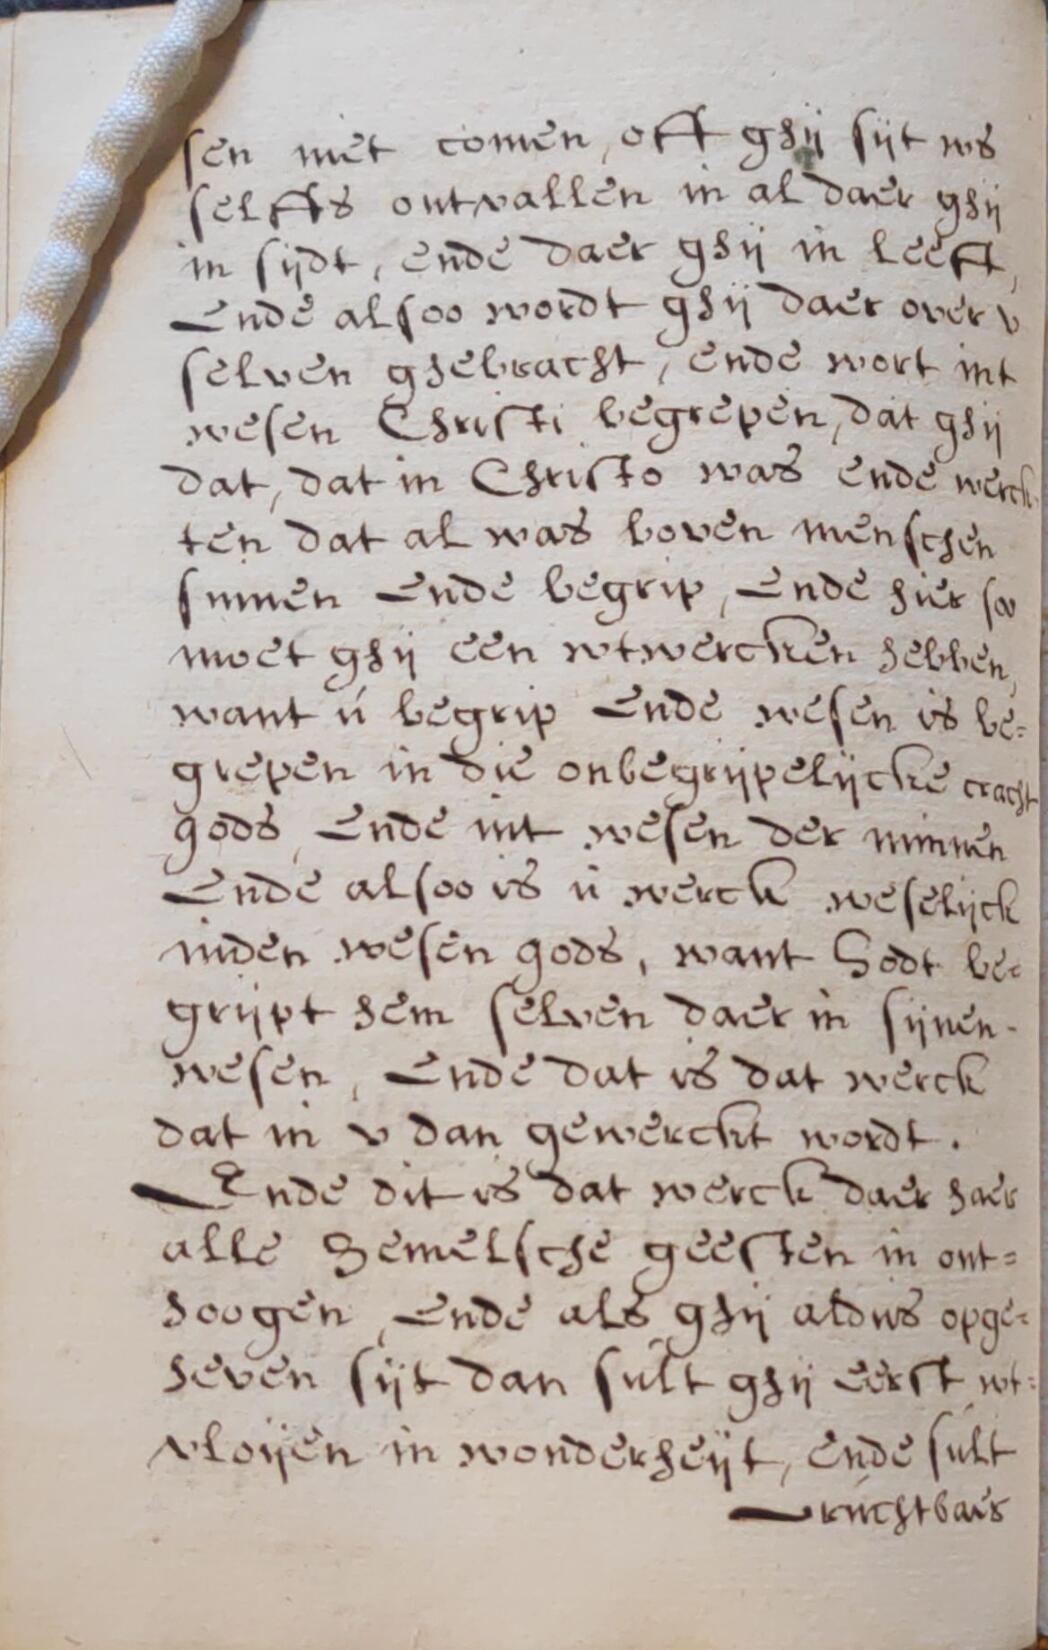 sen niet comen, oft ghij sijt ws
selffs ontvallen in al daer ghij
in sijdt, ende daer ghij in leeft,
Ende alsoo wordt ghij daer over v
selven ghebracht, ende wort int
wesen Christi begrepen, dat ghij
dat, dat in Christo was ende werck-
ten dat al was boven menschen
sinnen Ende begrip, Ende hier soo
moet ghij een wtwercken hebben,
want ú begrip Ende wesen is be=
grepen in die onbegrijpelijcke cracht
gods, Ende int wesen der minnen
Ende alsoo is ú werck weselijck
inden wesen gods, want Godt be=
grijpt hem selven daer in sijnen-
wesen, Ende dat is dat werck
dat in v dan gewerckt wordt.
Ende dit is dat werck daer haer
alle Hemelsche geesten in ont=
hoogen, Ende als ghij aldus opge=
heven sijt dan sult ghij eerst wt=
vloijen in wonderheijt, ende sult
vruchtbaer